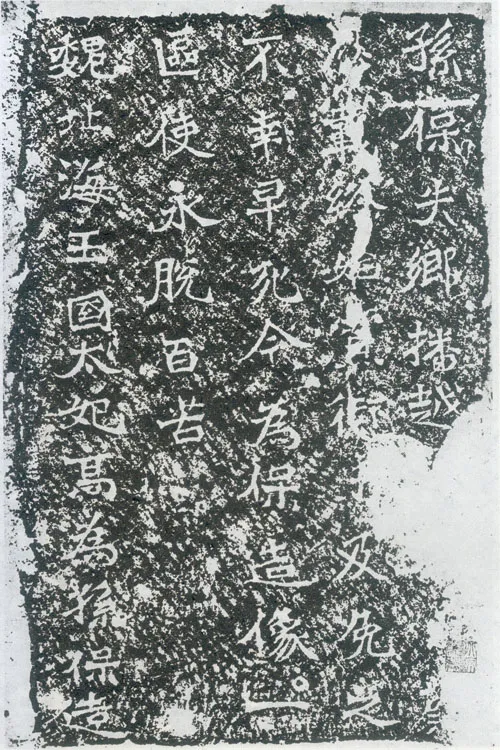 孫保失鄉播越
終始 及免之
不幸早死今為保造像一
區使永脫百苦
魏北海王國太妃高為孫保造